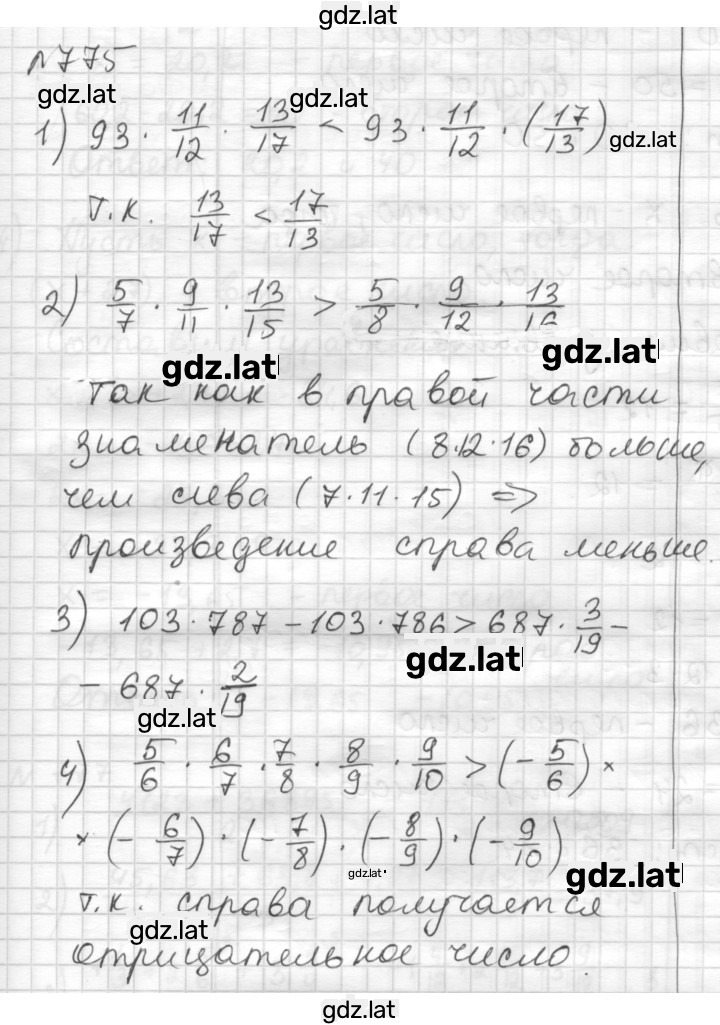 gdz.lat
№775
gdz.lat
gdz.lat
1) 93 · 11/12 · 13/17 < 93 · 11/12 · (17/13)
gdz.lat
т.к. 13/17 < 17/13
2) 5/7 · 9/11 · 13/15 > 5/8 · 9/12 · 13/16
gdz.lat
gdz.lat
так как в правой части
знаменатель (8·12·16) больше,
чем слева (7·11·15) =>
произведение справа меньше.
3) 103·787 – 103·786 > 687 · 3/19 –
gdz.lat
– 687 · 2/19
gdz.lat
4) 5/6 · 6/7 · 7/8 · 8/9 · 9/10 > (– 5/6) ×
× (– 6/7) · (– 7/8) · (– 8/9) · (– 9/10)
gdz.lat
gdz.lat
т.к. справа получается
gdz.lat
отрицательное число.
gdz.lat